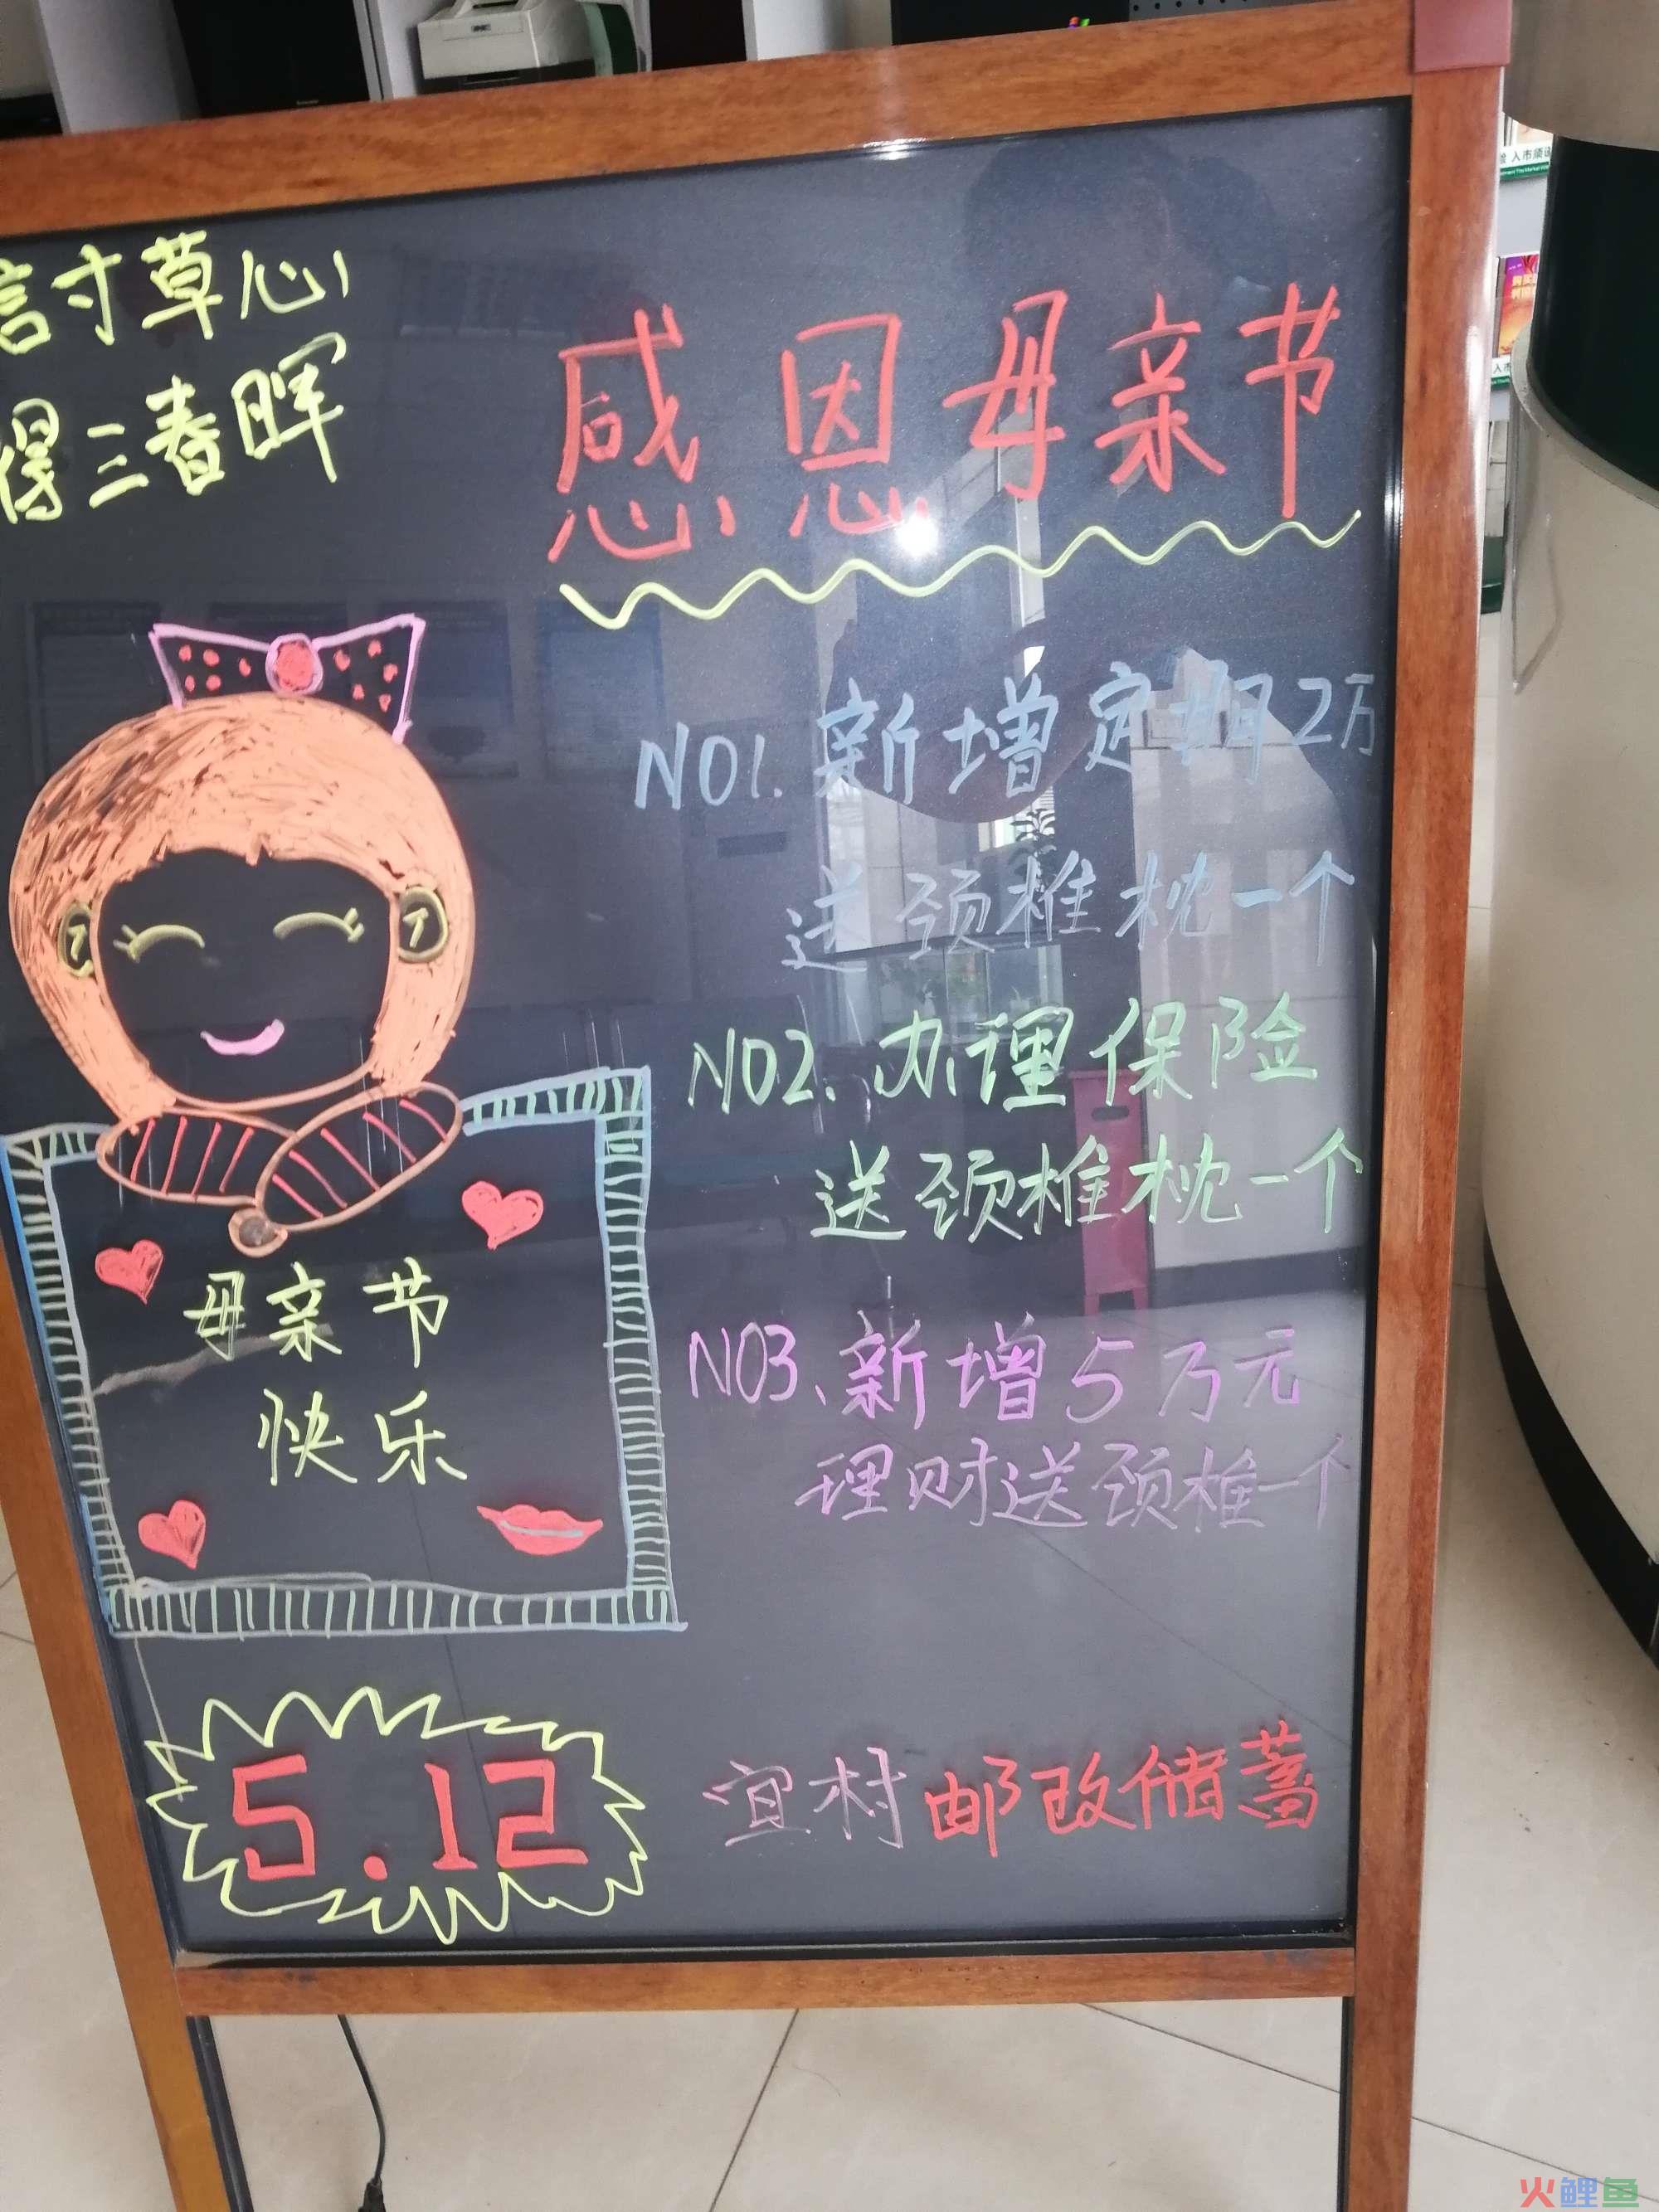 言寸草心
得三春晖
感恩母亲节
NO1.新增定期2万
送颈椎枕一个
NO2.办理保险
送颈椎枕一个
NO3、新增5万元
理财送颈椎一个
母亲节
快乐
5.12
宜村邮政储蓄
入市须谨
火鲤鱼